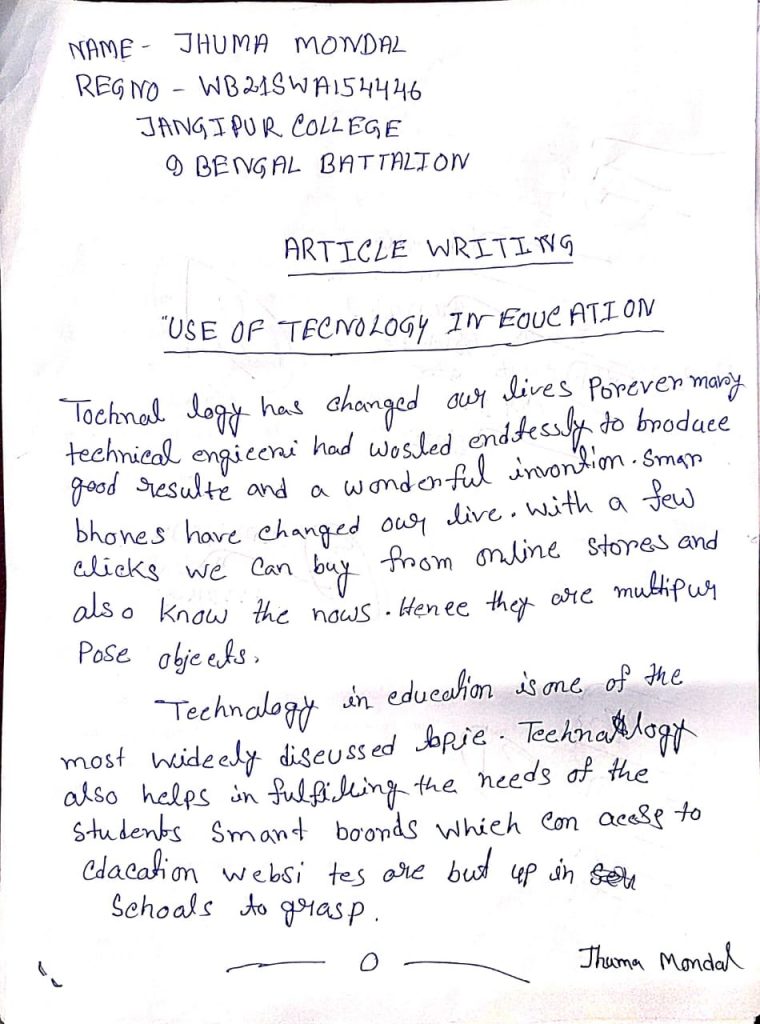 NAME - JHUMA MONDAL
REG NO - WB21SWA154446
JANGIPUR COLLEGE
9 BENGAL BATTALION
ARTICLE WRITING
"USE OF TECNOLOGY IN EDUCATION
Tochnal logy has changed our lives Porever many
technical engiceni had wosled endtessly to broduce
good resulte and a wonderful invontion. Smar
bhones have changed our live. With a few
clicks we can buy from online stores and
also know the nows. Henee they are multipur
Pose objects.
Technology in education is one of the
most wideely discussed topie. Teechnalogy
also helps in fulfilling the needs of the
Students Smart boonds which con acess to
Edacation websi tes are but up in
Schoals to grasp.
O
Jhuma Mondal